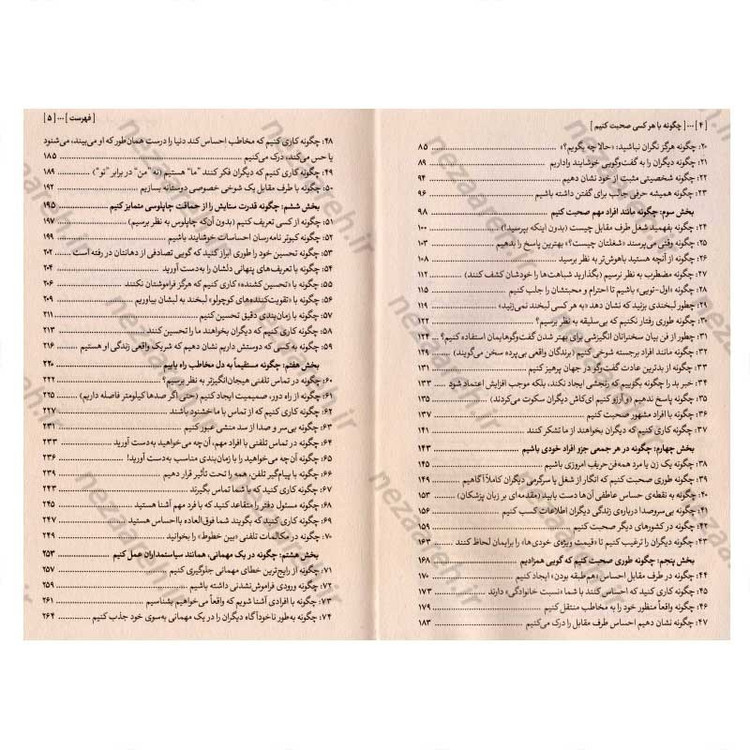 [ ۴ ] ... [ چگونه با هر کسی صحبت کنیم ]
۲۰: چگونه هرگز نگران نباشید: «حالا چه بگویم؟» ۸۵
۲۱: چگونه دیگران را به گفت‌وگویی خوشایند واداریم ۸۹
۲۲: چگونه شخصیتی مثبت از خود نشان دهیم ۹۴
۲۳: چگونه همیشه حرفی جالب برای گفتن داشته باشیم ۹۶
بخش سوم: چگونه مانند افراد مهم صحبت کنیم ۹۸
۲۴: چگونه بفهمید شغل طرف مقابل چیست (بدون اینکه بپرسید!) ۱۰۰
۲۵: چگونه وقتی می‌پرسند «شغلتان چیست؟» بهترین پاسخ را بدهیم ۱۰۳
۲۶: چگونه از آنچه هستید باهوش‌تر به نظر برسید ۱۰۸
۲۷: چگونه مضطرب به نظر نرسیم (بگذارید شباهت‌ها را خودشان کشف کنند) ۱۱۲
۲۸: چگونه «اول-تویی» باشیم تا احترام و محبتشان را جلب کنیم ۱۱۵
۲۹: چطور لبخندی بزنید که نشان دهد «به هر کسی لبخند نمی‌زنید» ۱۱۹
۳۰: چگونه طوری رفتار نکنیم که بی‌سلیقه به نظر برسیم؟ ۱۲۲
۳۱: چطور از فن بیان سخنرانان انگیزشی برای بهتر شدن گفت‌وگوهایمان استفاده کنیم؟ ۱۲۴
۳۲: چگونه مانند افراد برجسته شوخی کنیم (برندگان واقعی بی‌پرده سخن می‌گویند) ۱۲۹
۳۳: چگونه از بدترین عادت گفت‌وگو در جهان پرهیز کنیم ۱۳۱
۳۴: خبر بد را چگونه بگوییم که رنجشی ایجاد نکند، بلکه موجب افزایش اعتماد شود ۱۳۳
۳۵: چگونه پاسخ ندهیم (و آرزو کنیم ای‌کاش دیگران سکوت می‌کردند) ۱۳۵
۳۶: چگونه با افراد مشهور صحبت کنیم ۱۳۷
۳۷: چگونه کاری کنیم که دیگران بخواهند از ما تشکر کنند ۱۴۱
بخش چهارم: چگونه در هر جمعی جزو افراد خودی باشیم ۱۴۳
۳۸: چگونه یک زن یا مرد همه‌فن‌حریف امروزی باشیم ۱۴۵
۳۹: چگونه طوری صحبت کنیم که انگار از شغل یا سرگرمی دیگران کاملاً آگاهیم ۱۴۹
۴۰: چگونه به نقطه‌ی حساس عاطفی آن‌ها دست یابید (مقدمه‌ای بر زبان پزشکان) ۱۵۳
۴۱: چگونه بی‌سروصدا درباره‌ی زندگی دیگران اطلاعات کسب کنیم ۱۵۶
۴۲: چگونه در کشورهای دیگر صحبت کنیم ۱۵۹
۴۳: چگونه دیگران را ترغیب کنیم تا «قیمت ویژه‌ی خودی‌ها» را برایمان لحاظ کنند ۱۶۳
بخش پنجم: چگونه طوری صحبت کنیم که گویی همزادیم ۱۶۸
۴۴: چگونه در طرف مقابل احساس «هم‌طبقه بودن» ایجاد کنیم ۱۷۰
۴۵: چگونه کاری کنید که احساس کنند با شما «نسبت خانوادگی» دارند ۱۷۳
۴۶: چگونه واقعاً منظور خود را به مخاطب منتقل کنیم ۱۷۹
۴۷: چگونه نشان دهیم احساس طرف مقابل را درک می‌کنیم ۱۸۳
[ فهرست ] ... [ ۵ ]
۴۸: چگونه کاری کنیم که مخاطب احساس کند دنیا را درست همان‌طور که او می‌بیند، می‌شنود
یا حس می‌کند، درک می‌کنیم ۱۸۵
۴۹: چگونه کاری کنیم که دیگران فکر کنند "ما" هستیم (به "من" در برابر "تو") ۱۸۹
۵۰: چگونه با طرف مقابل یک شوخی خصوصی دوستانه بسازیم ۱۹۲
بخش ششم: چگونه قدرت ستایش را از حماقت چاپلوسی متمایز کنیم ۱۹۵
۵۱: چگونه از کسی تعریف کنیم (بدون آن‌که چاپلوس به نظر برسیم) ۱۹۷
۵۲: چگونه کبوتر نامه‌رسان احساسات خوشایند باشیم ۱۹۹
۵۳: چگونه تحسین خود را طوری ابراز کنید که گویی تصادفی از دهانتان در رفته است ۲۰۲
۵۴: چگونه با تعریف‌های پنهانی دلشان را به‌دست آورید ۲۰۴
۵۵: چگونه با «تحسین کشنده» کاری کنیم که هرگز فراموشتان نکنند ۲۰۶
۵۶: چگونه با «تقویت‌کننده‌های کوچولو» لبخند به لبشان بیاوریم ۲۰۹
۵۷: چگونه با زمان‌بندی دقیق تحسین کنیم ۲۱۱
۵۸: چگونه کاری کنیم که دیگران بخواهند ما را تحسین کنند ۲۱۳
۵۹: چگونه به کسی که دوستش داریم نشان دهیم که شریک واقعی زندگی او هستیم ۲۱۶
بخش هفتم: چگونه مستقیماً به دل مخاطب راه یابیم ۲۲۰
۶۰: چگونه در تماس تلفنی هیجان‌انگیزتر به نظر برسیم؟ ۲۲۲
۶۱: چگونه از راه دور، صمیمیت ایجاد کنیم (حتی اگر صدها کیلومتر فاصله داریم) ۲۲۵
۶۲: چگونه کاری کنیم که از تماس با ما خشنود باشند ۲۲۷
۶۳: چگونه بی‌سر و صدا از سد منشی عبور کنیم ۲۳۱
۶۴: چگونه در تماس تلفنی با افراد مهم، آن‌چه می‌خواهید به‌دست آورید ۲۳۳
۶۵: چگونه آن‌چه می‌خواهید را با زمان‌بندی مناسب به‌دست آورید! ۲۳۶
۶۶: چگونه با پیام‌گیر تلفن، همه را تحت تأثیر قرار دهیم ۲۳۹
۶۷: چگونه کاری کنید که با شما تماس بگیرند ۲۴۳
۶۸: چگونه مسئول دفتر را متقاعد کنید که با فرد مهم آشنا هستید ۲۴۵
۶۹: چگونه کاری کنید که بگویند شما فوق‌العاده بااحساس هستید ۲۴۷
۷۰: چگونه در مکالمات تلفنی «بین خطوط» را بخوانید ۲۴۹
بخش هشتم: چگونه در یک مهمانی، همانند سیاستمداران عمل کنیم ۲۵۳
۷۱: چگونه از رایج‌ترین خطای مهمانی جلوگیری کنیم ۲۵۷
۷۲: چگونه ورودی فراموش‌نشدنی داشته باشیم ۲۵۹
۷۳: چگونه با افرادی آشنا شویم که واقعاً می‌خواهیم بشناسیم ۲۶۱
۷۴: چگونه به‌طور ناخودآگاه دیگران را در یک مهمانی به‌سوی خود جذب کنیم ۲۶۴
nezaareh.ir